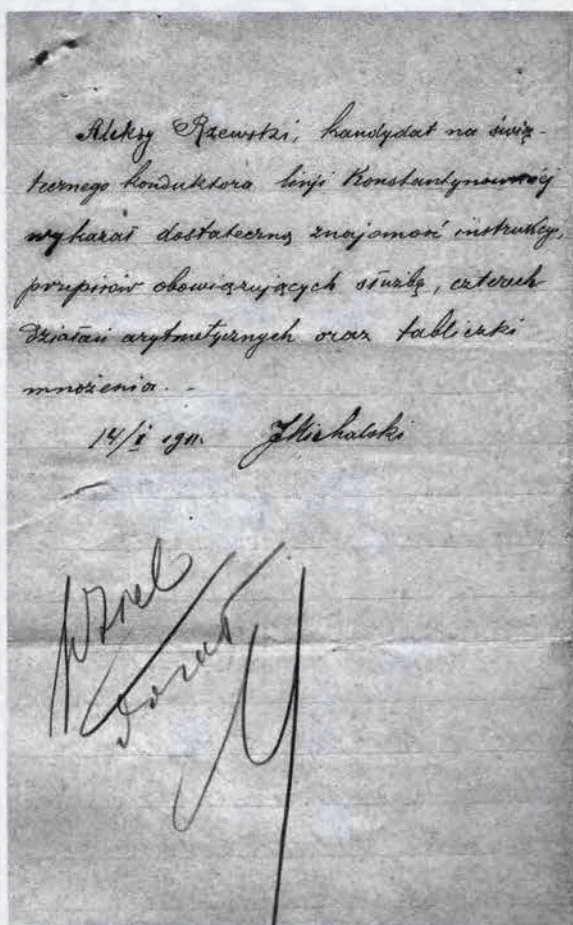 Aleksy Rzewski, kandydat na świą-
tecznego konduktora linji Konstantynowskiej
wykazał dostateczną znajomość instrukcyi,
przepisów obowiązujących służbę, czterech
działań arytmetycznych oraz tabliczki
mnożenia. -
14/I 1911. JMichalski